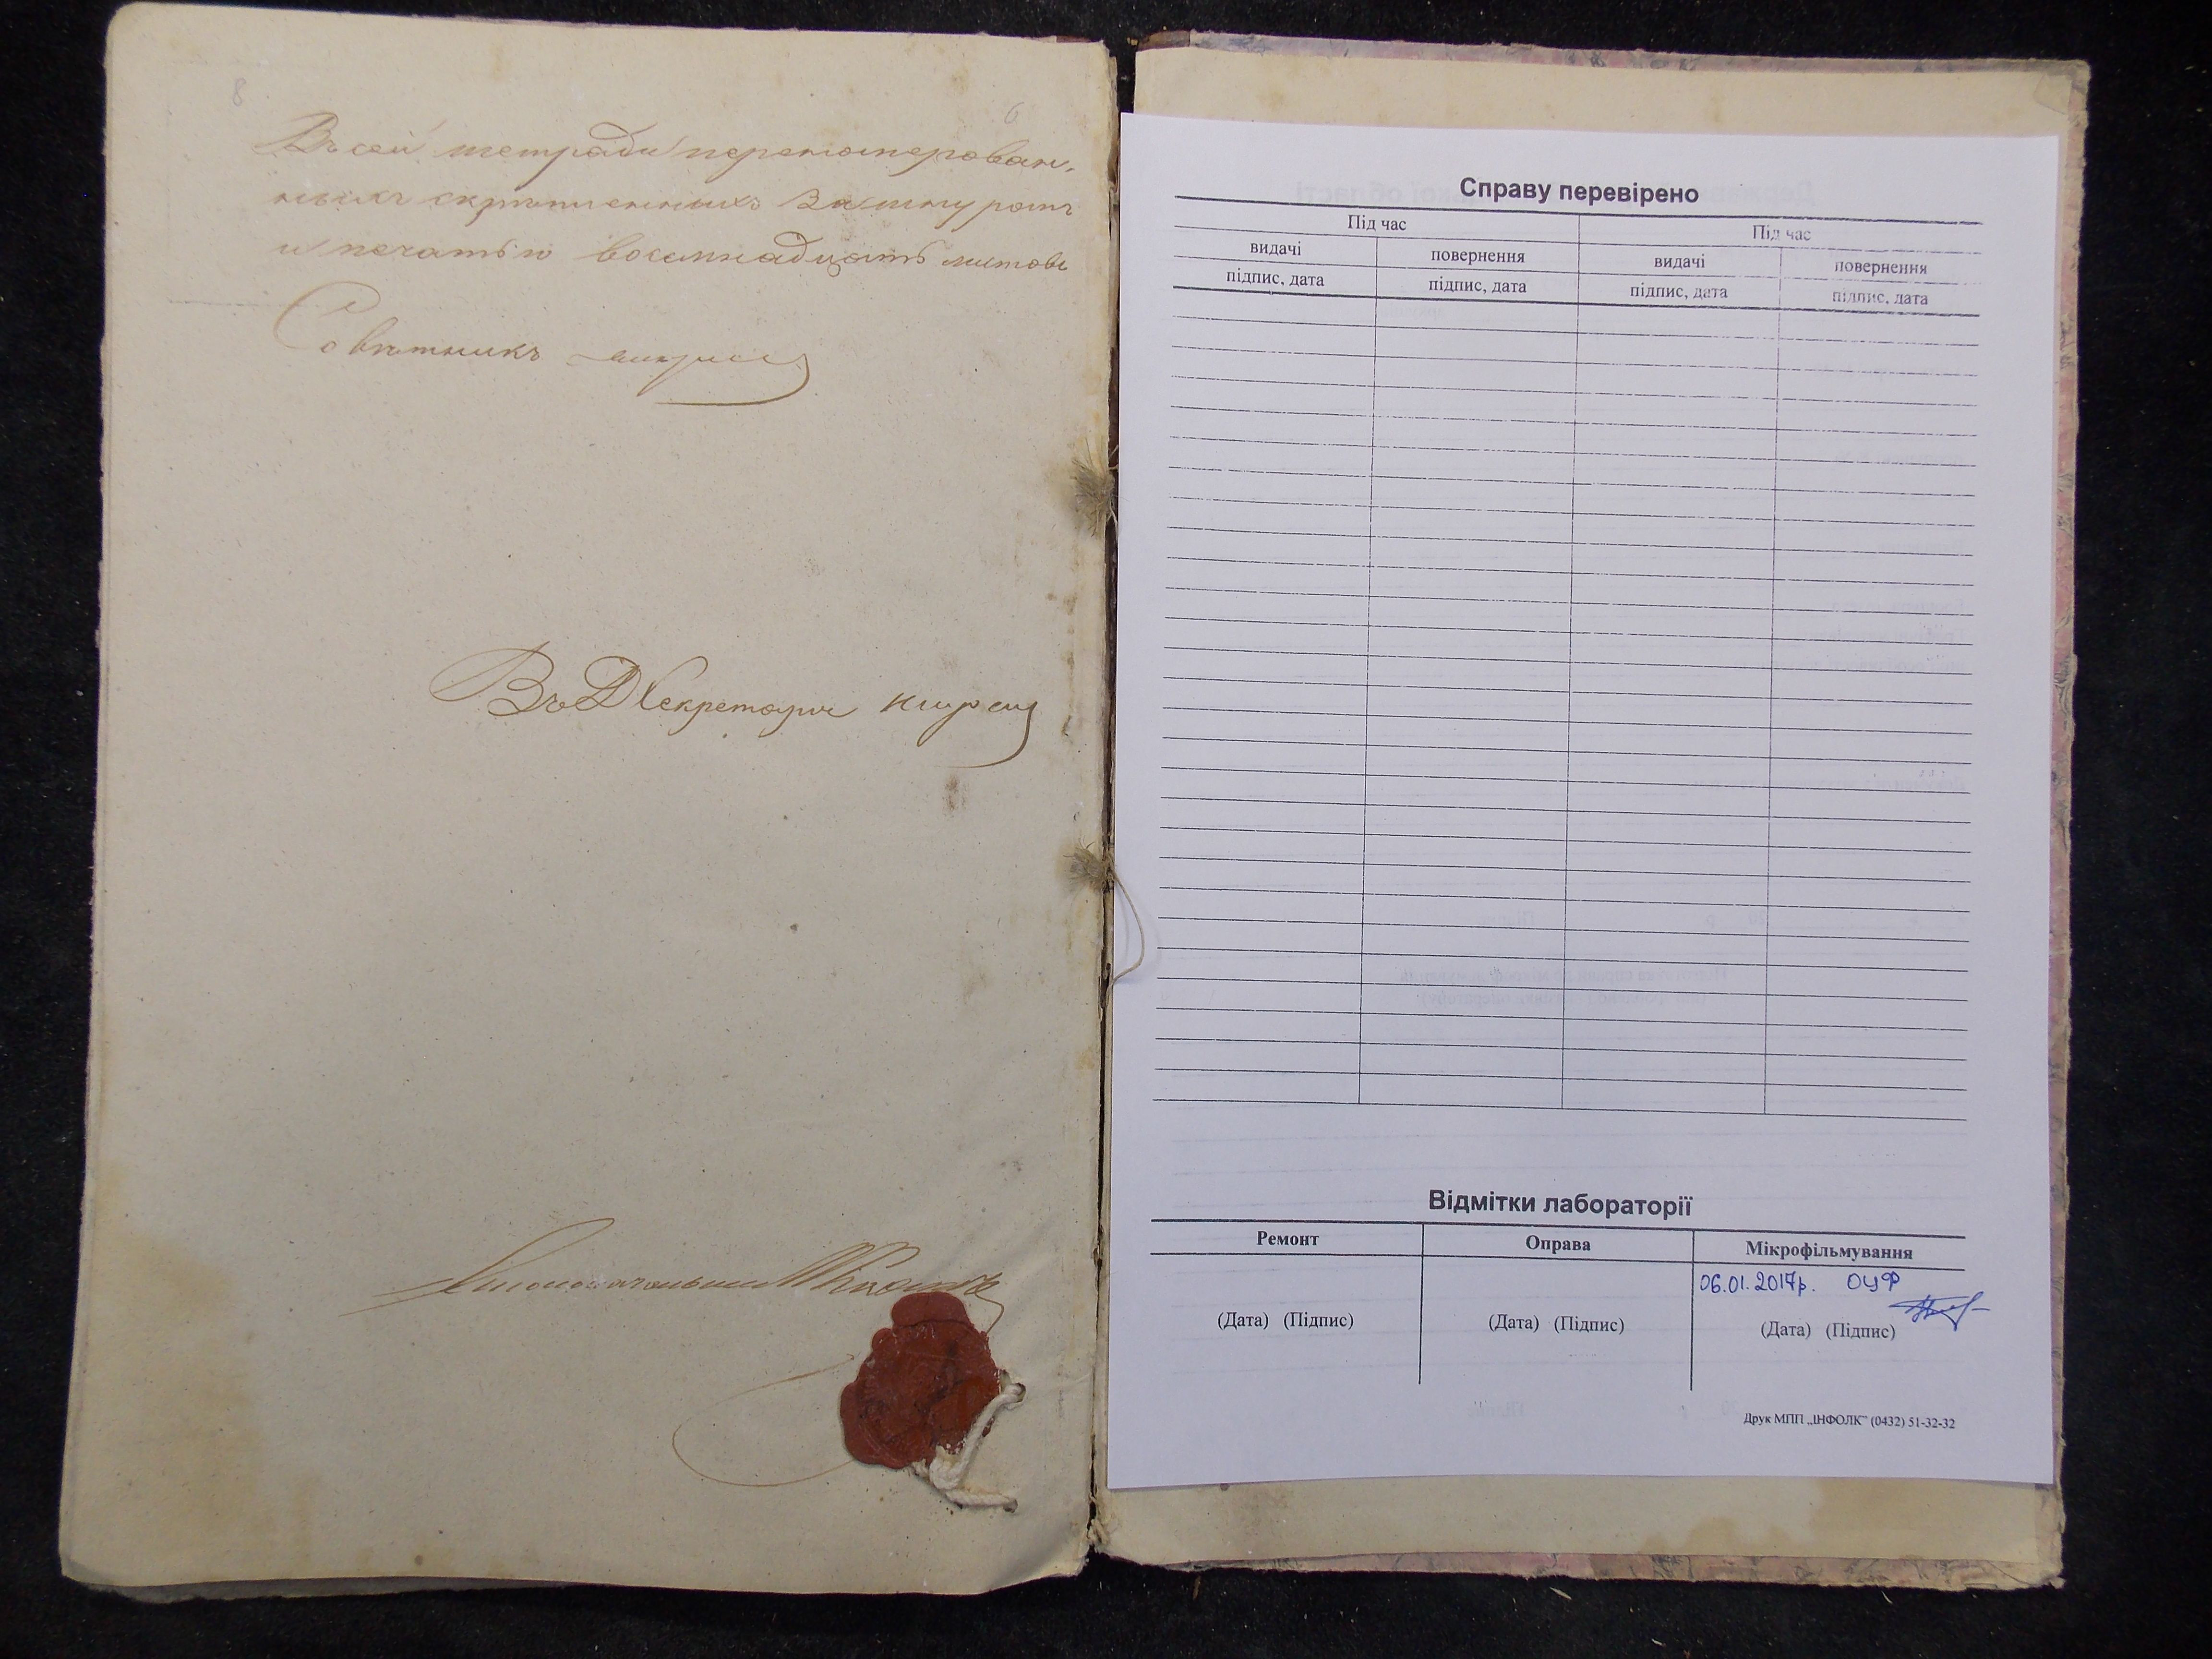 8
6
Въ сей тетради перенумерован,
ныхъ скрѣпленныхъ за шнуромъ
и печатью восемнадцать листовъ
Совѣтникъ
Въ Д Секретаря
Справу перевірено
Під час Під час
видачі повернення видачі повернення
підпис, дата підпис, дата підпис, дата підпис, дата
Відмітки лабораторії
Ремонт Оправа Мікрофільмування
06.01.2017р. ОЦФ
(Дата) (Підпис) (Дата) (Підпис) (Дата) (Підпис)
Друк МПП „ІНФОЛК” (0432) 51-32-32